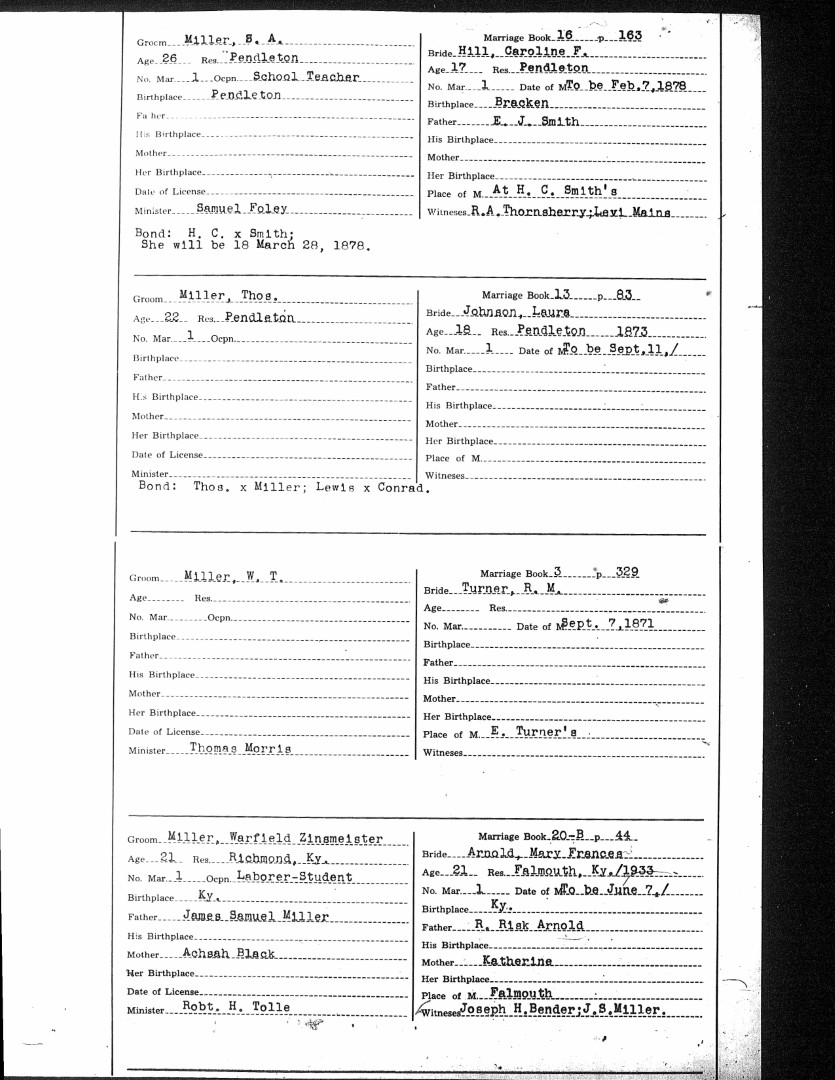 Groom Miller, S. A.
Age 26 Res. Pendleton
No. Mar 1 Ocpn. School Teacher
Birthplace Pendleton
Father
His Birthplace
Mother
Her Birthplace
Date of License
Minister Samuel Foley
Marriage Book 16 p 163
Bride Hill, Caroline F.
Age 17 Res. Pendleton
No. Mar 1 Date of M To be Feb.7,1878
Birthplace Bracken
Father E. J. Smith
His Birthplace
Mother
Her Birthplace
Place of M. At H. C. Smith's
Witneses R.A.Thornsberry;Levi Mains
Bond: H. C. x Smith;
She will be 18 March 28, 1878.
Groom Miller, Thos.
Age 22 Res. Pendleton
No. Mar 1 Ocpn.
Birthplace
Father
His Birthplace
Mother
Her Birthplace
Date of License
Minister
Marriage Book 13 p 83
Bride Johnson, Laura
Age 18 Res. Pendleton 1873
No. Mar. 1 Date of M To be Sept.11,/
Birthplace
Father
His Birthplace
Mother
Her Birthplace
Place of M.
Witneses
Bond: Thos. x Miller; Lewis x Conrad.
Groom Miller, W. T.
Age Res.
No. Mar. Ocpn.
Birthplace
Father
His Birthplace
Mother
Her Birthplace
Date of License
Minister Thomas Morris
Marriage Book 3 p 329
Bride Turner, R. M.
Age Res.
No. Mar. Date of M Sept. 7,1871
Birthplace
Father
His Birthplace
Mother
Her Birthplace
Place of M. E. Turner's
Witneses
Groom Miller, Warfield Zinsmeister
Age 21 Res. Richmond, Ky.
No. Mar. 1 Ocpn. Laborer-Student
Birthplace Ky.
Father James Samuel Miller
His Birthplace
Mother Achsah Black
Her Birthplace
Date of License
Minister Robt. H. Tolle
Marriage Book 20-B p 44
Bride Arnold, Mary Frances
Age 21 Res. Falmouth, Ky./1933
No. Mar. 1 Date of M To be June 7,/
Birthplace Ky.
Father R. Risk Arnold
His Birthplace
Mother Katherine
Her Birthplace
Place of M. Falmouth
Witneses Joseph H.Bender;J.S.Miller.